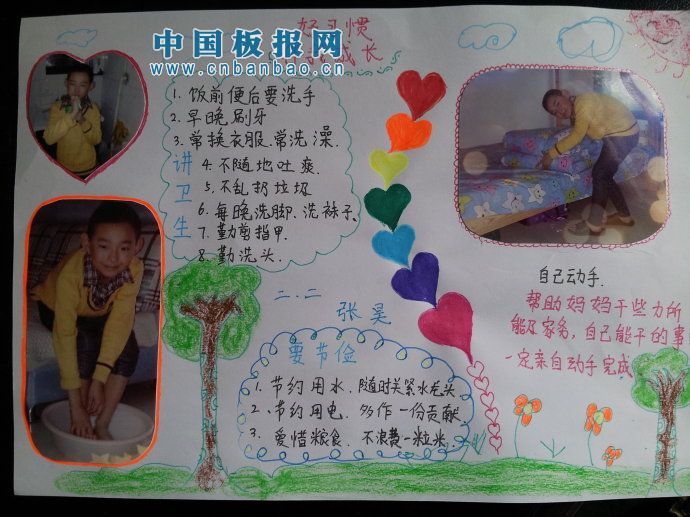 中国板报网
www.cnbanbao.cn
好习惯
成长
讲卫生
1. 饭前便后要洗手
2. 早晚刷牙
3. 常换衣服.常洗澡.
4. 不随地吐痰.
5. 不乱扔垃圾
6. 每晚洗脚.洗袜子.
7. 勤剪指甲.
8. 勤洗头.
二.二
张昊
要节俭
1. 节约用水、随时关紧水龙头.
2. 节约用电、多作一份贡献
3. 爱惜粮食、不浪费一粒米.
自己动手.
帮助妈妈干些力所
能及家务,自己能干的事
一定亲自动手完成